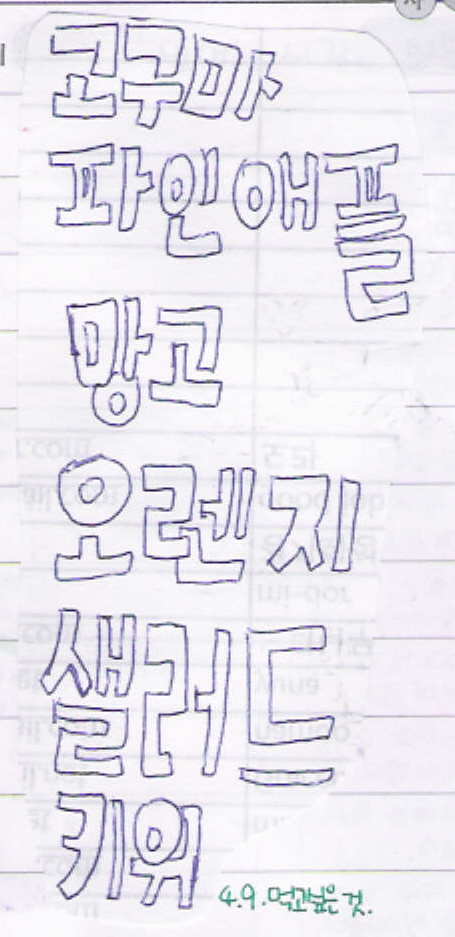 고구마
파인애플
망고
오렌지
샐러드
키위
4.9.먹고싶은 것.